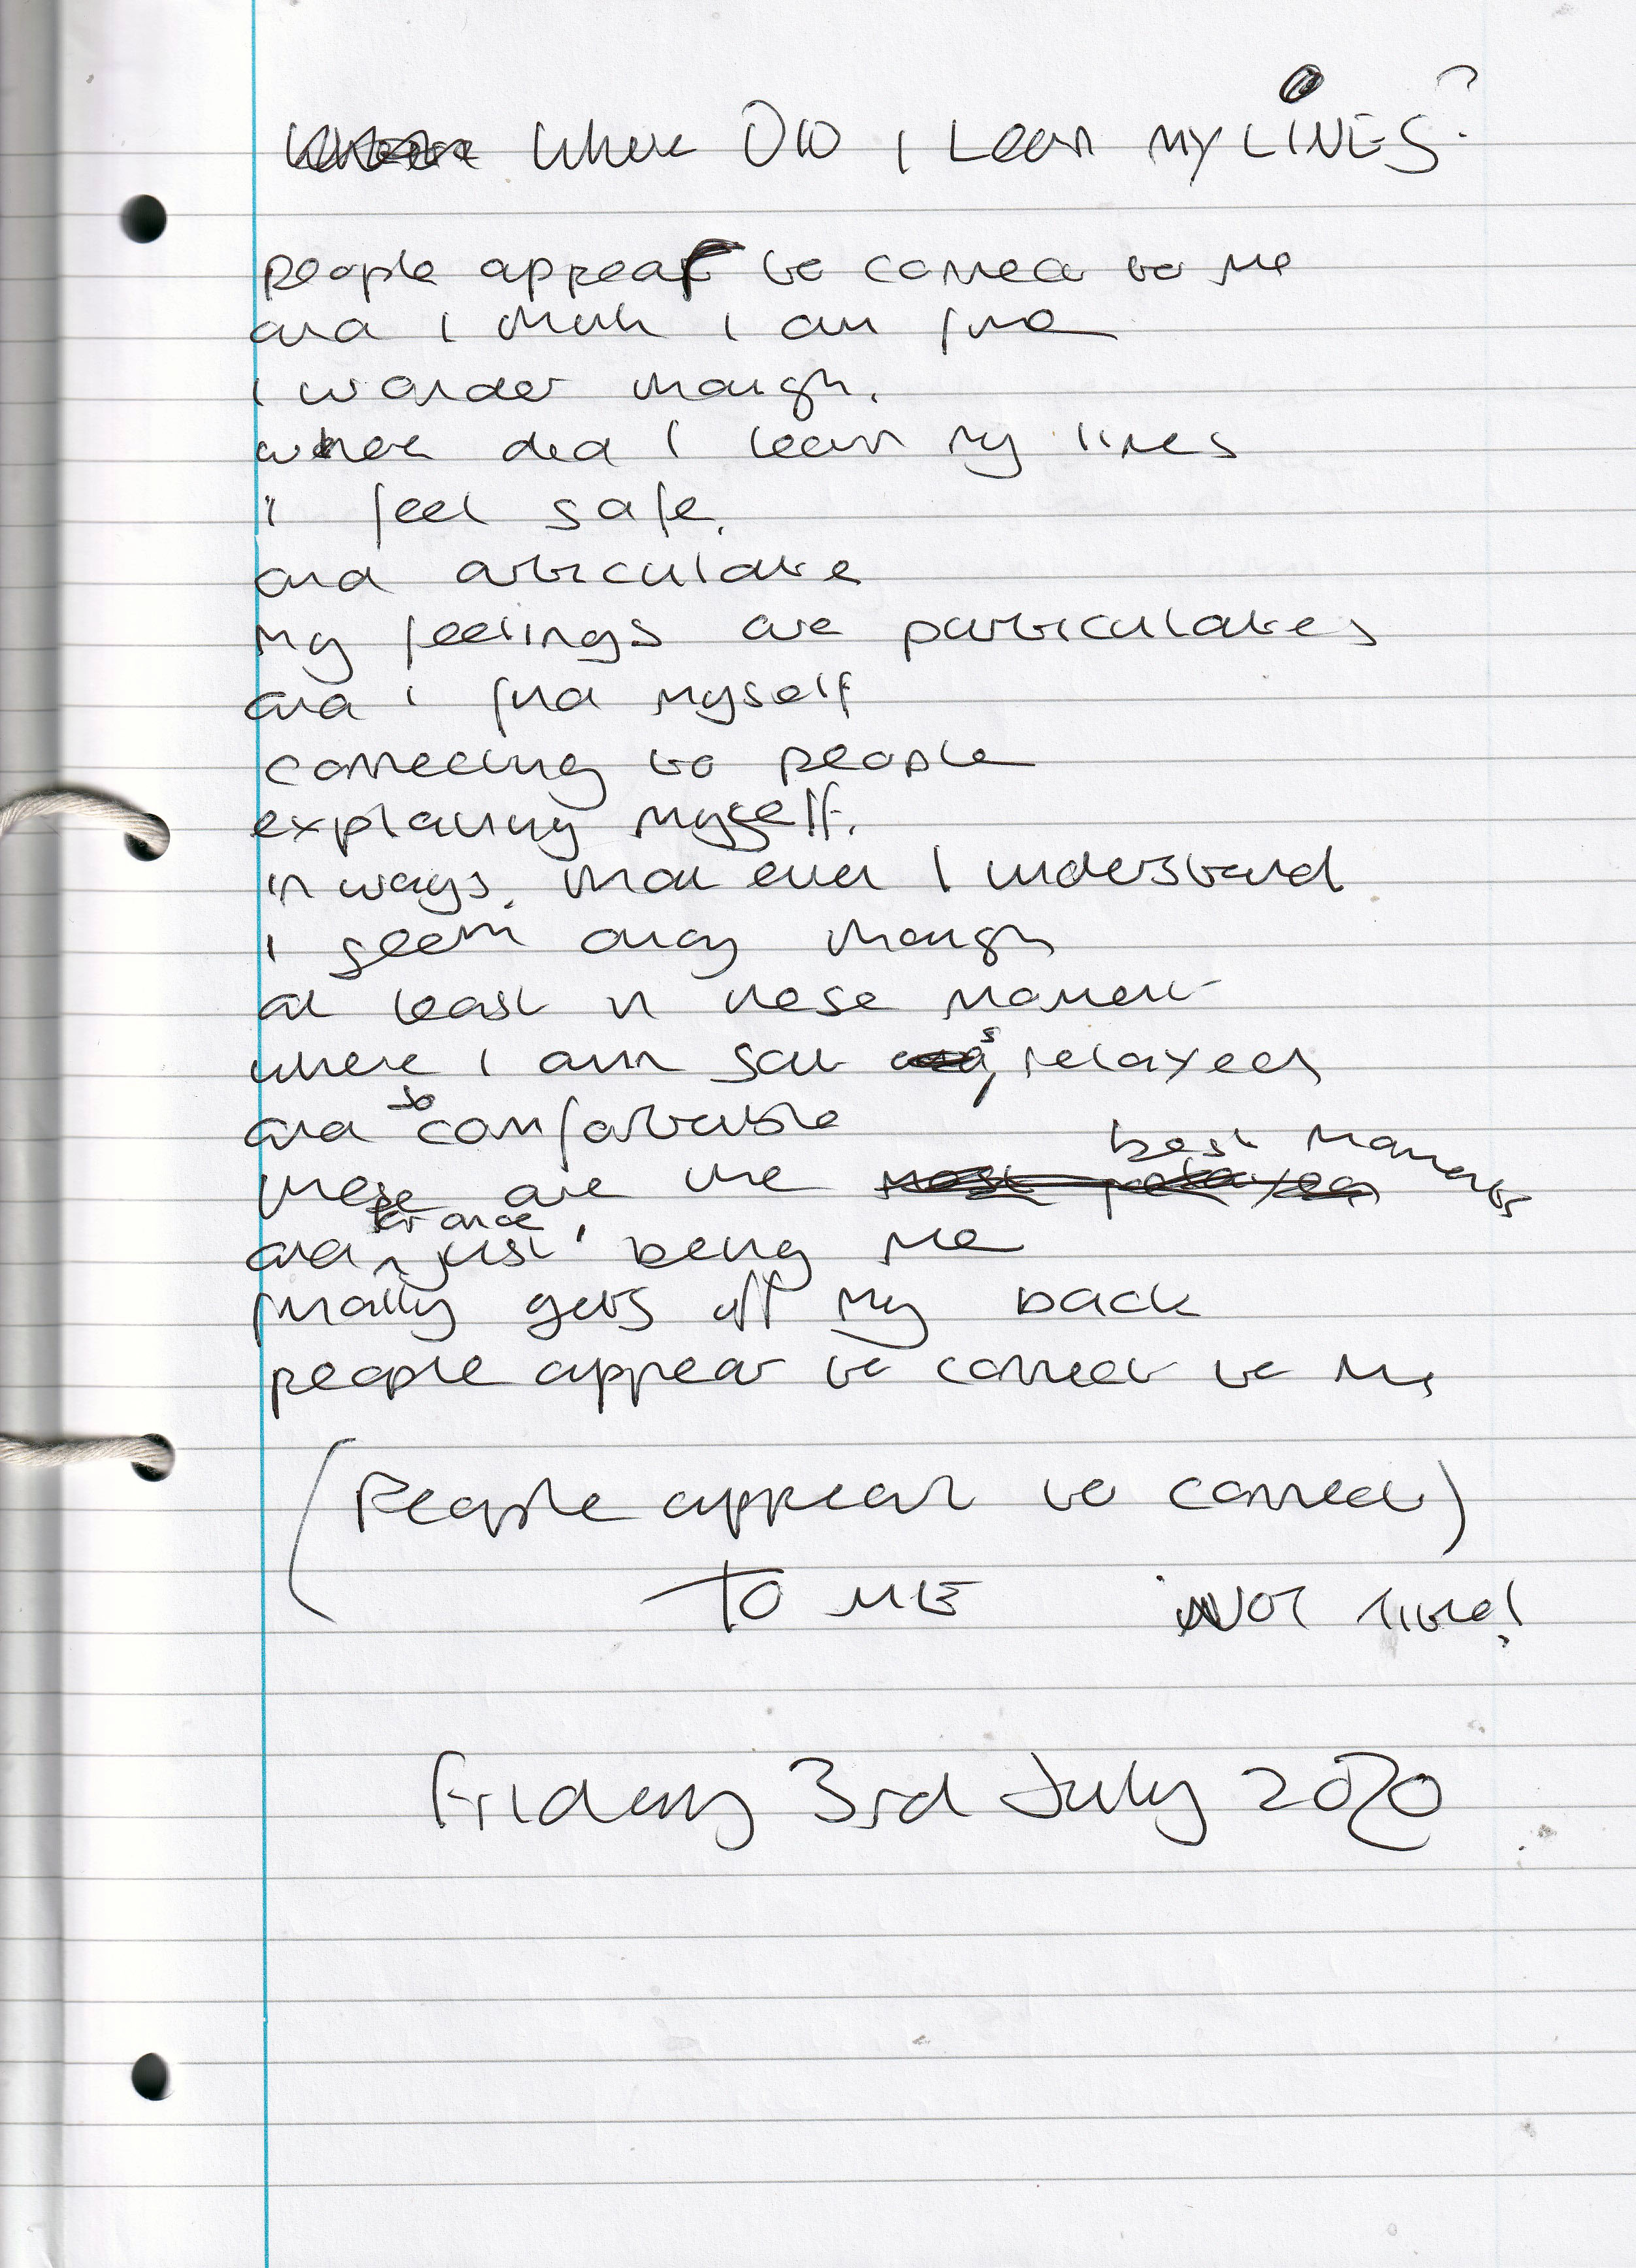 Where DID I Learn MY LINES?
people appear to connect to me
and I think I am fine
I wonder though.
where did I learn my lines
i feel safe.
and articulate
my feelings are particulates
and i find myself
connecting to people
explaining myself.
in ways. that even I understand
I seem okay though
at least in these moment
where I am sat relaxed
and so comfortable
these are the best moments
and for once just, being me
finally gets off my back
people appear to connect to me
(People appear to connect)
TO ME NOT Title!
Friday 3rd July 2020